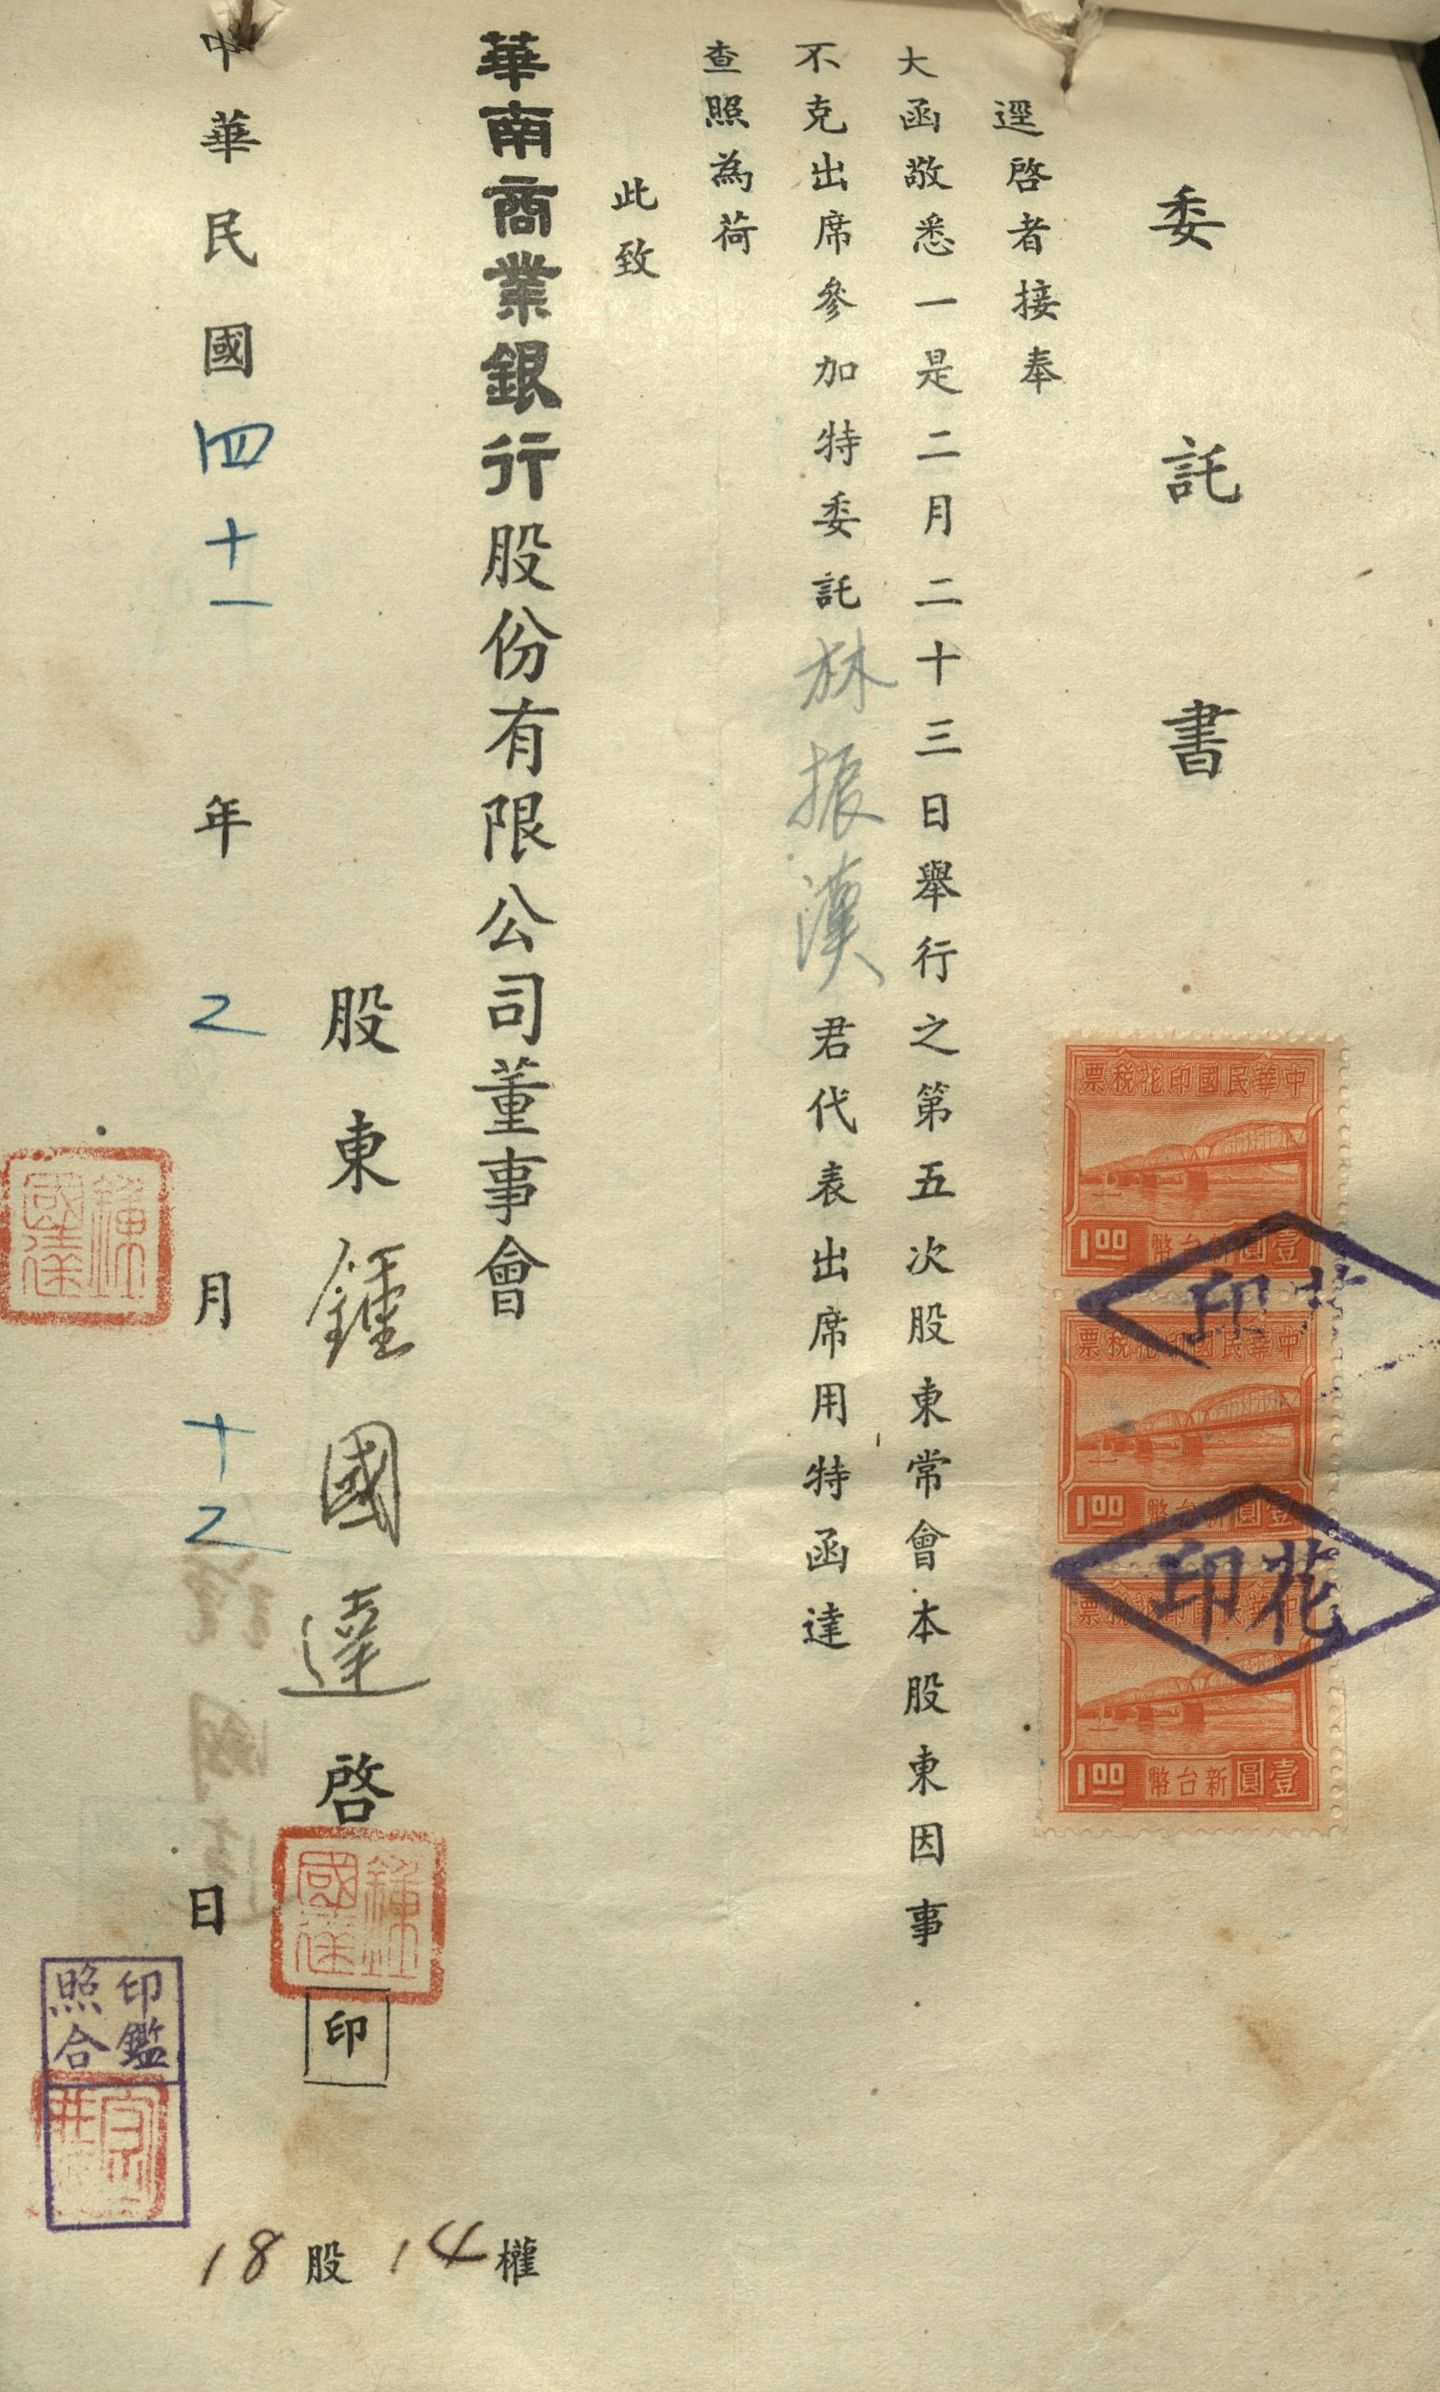 委託書
逕啓者接奉
大函敬悉一是二月二十三日舉行之第五次股東常會本股東因事
不克出席參加特委託林振漢君代表出席用特函達
查照為荷
此致
華南商業銀行股份有限公司董事會
股東鍾國達啓
印
中華民國四十一年2月十2日
18股14權
中華民國印花稅票
1.00 壹圓新台幣
中華民國印花稅票
1.00 壹圓新台幣
中華民國印花稅票
1.00 壹圓新台幣
印花
印花
鍾國達
鍾國達
印鑑
照合